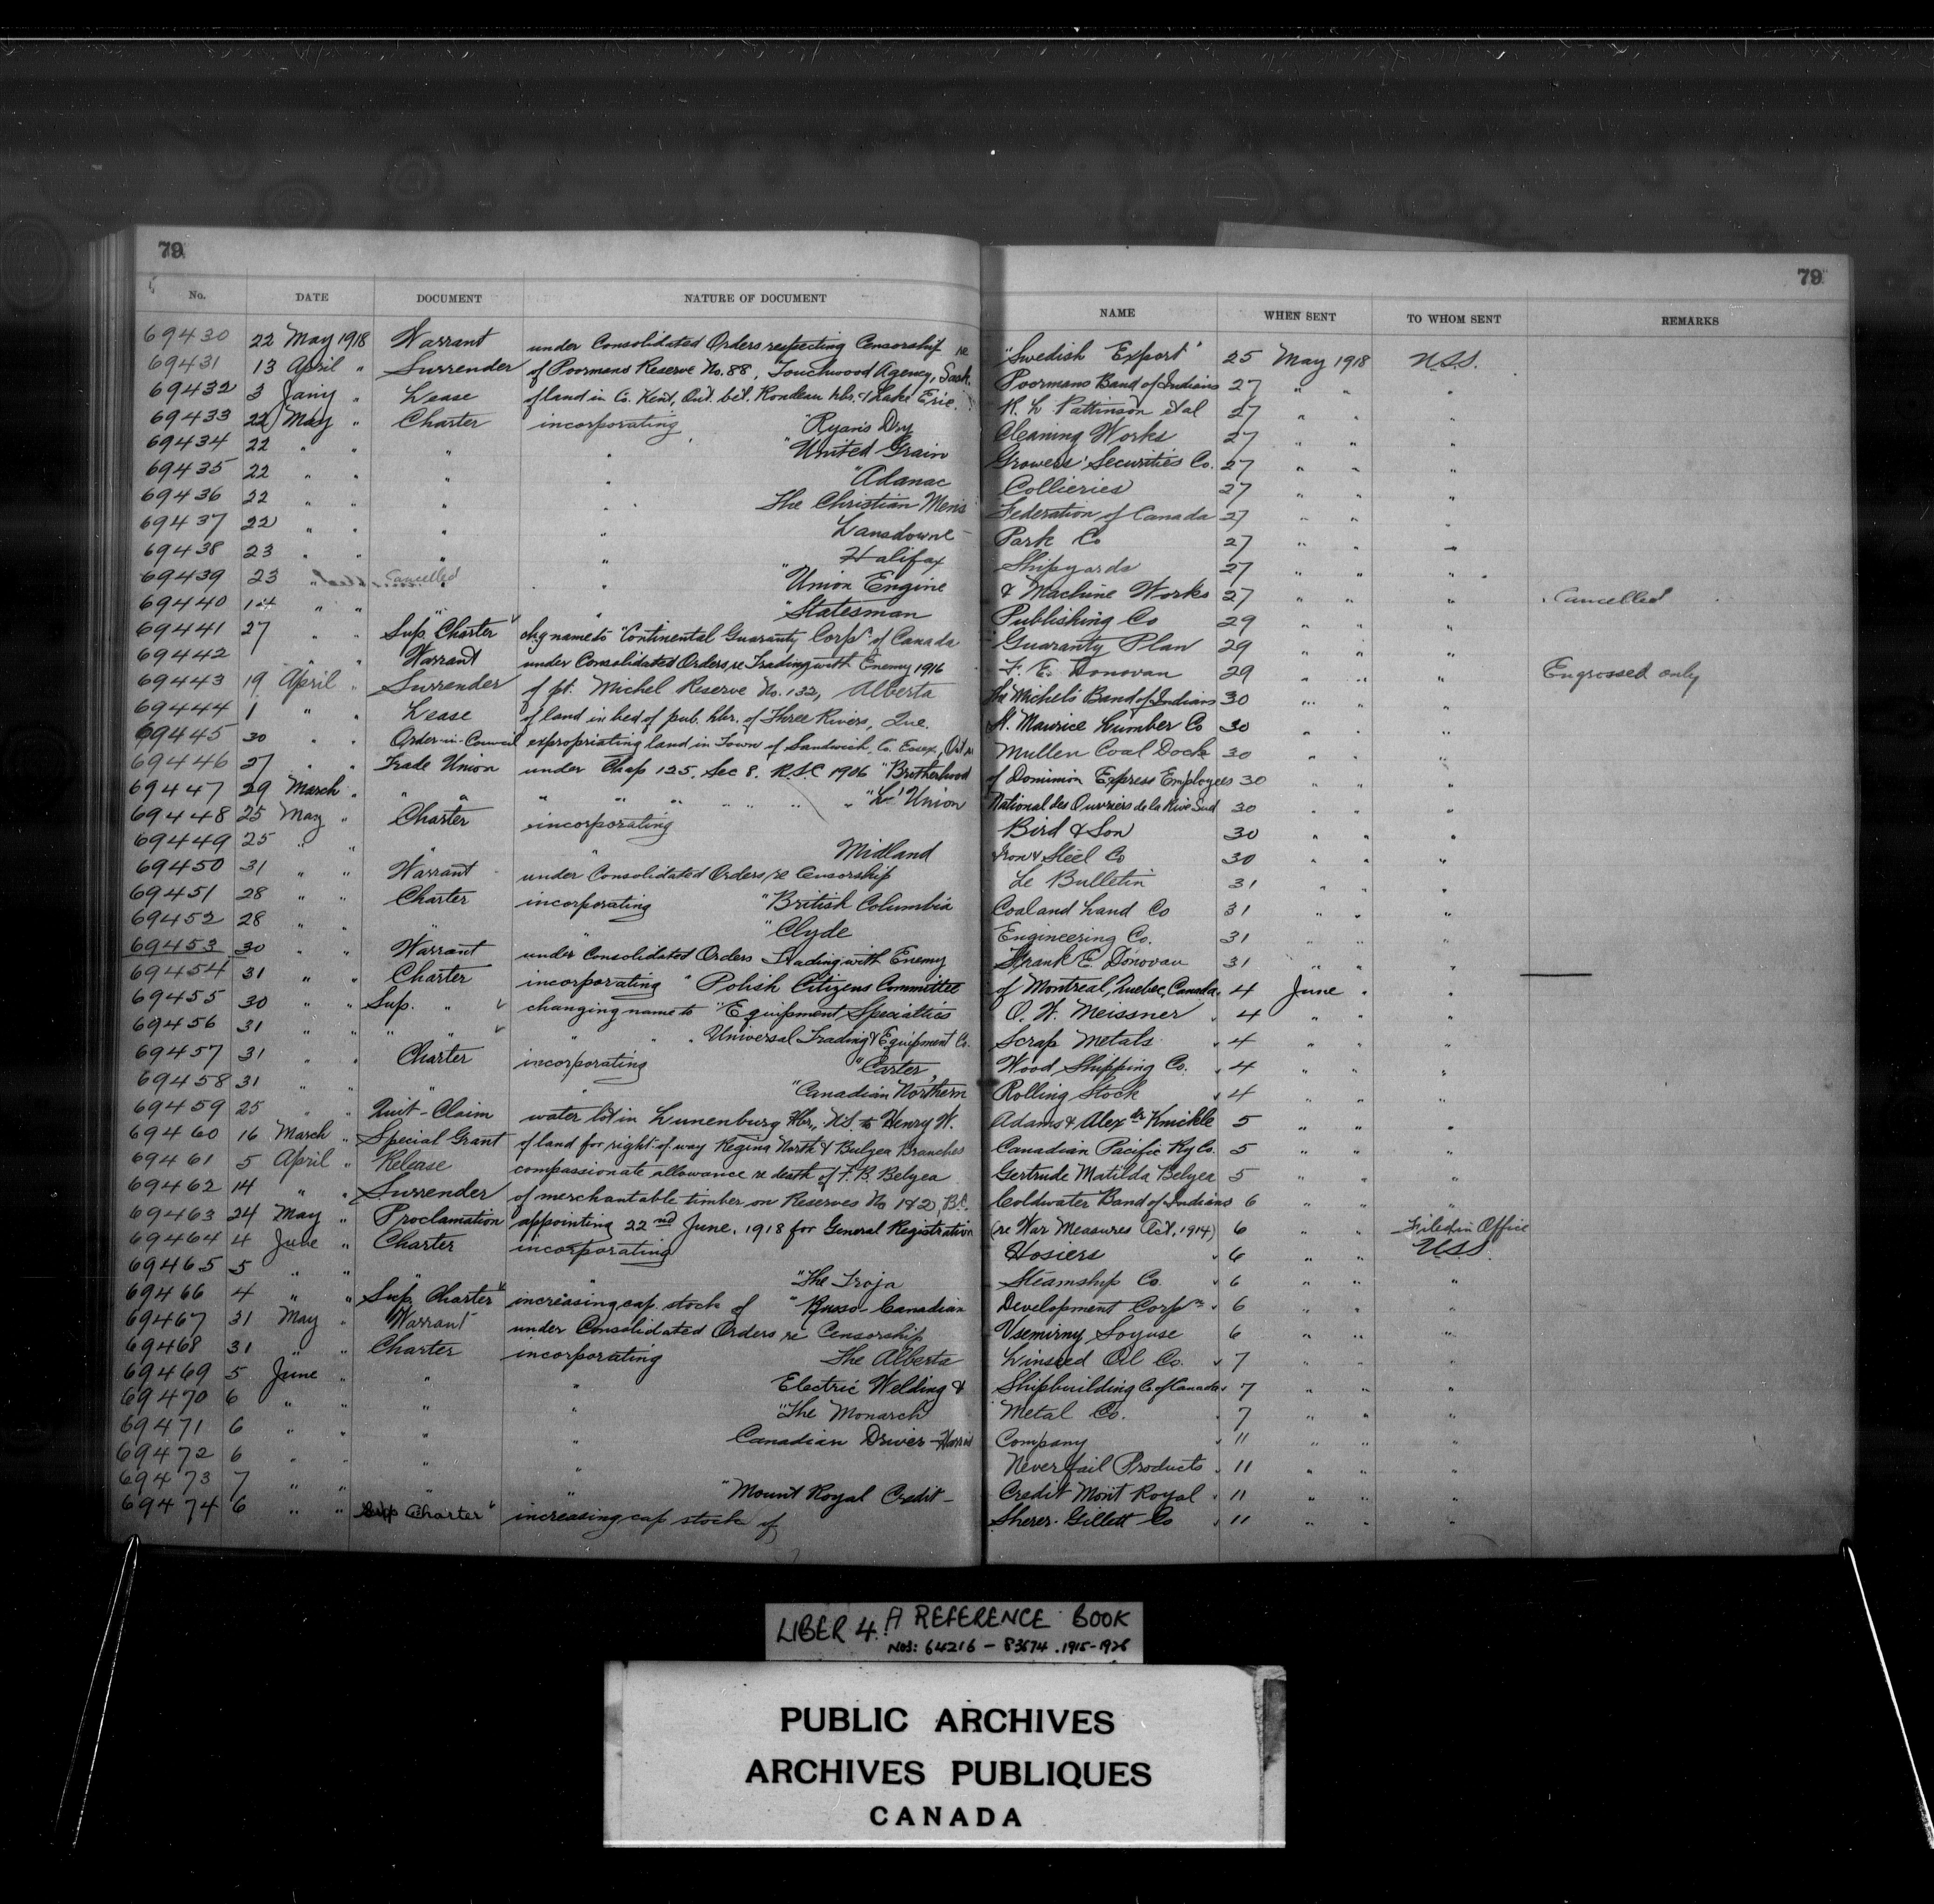 79 79
No. DATE DOCUMENT NATURE OF DOCUMENT NAME WHEN SENT TO WHOM SENT REMARKS
69430 22 May 1918 Warrant under Consolidated Orders respecting Censorship re "Swedish Export" 25 May 1918 U.S.S.
69431 13 April " Surrender of Poormans Reserve No. 88, Touchwood Agency, Sask. Poormans Band of Indians 27 " " "
69432 3 Jany " Lease of land in Co. Kent, Ont. bet. Rondeau hbr. & Lake Erie. H. L. Pattinson et al 27 " " "
69433 22 May " Charter incorporating "Ryan's Dry Cleaning Works 27 " " "
69434 22 " " " " "United Grain Growers' Securities Co. 27 " " "
69435 22 " " " " "Adanac Collieries 27 " " "
69436 22 " " " " The Christian Men's Federation of Canada 27 " " "
69437 22 " " " " Lansdowne Park Co 27 " " "
69438 23 " " " " "Halifax Shipyards 27 " " "
69439 23 " " Cancelled " "Union Engine & Machine Works 27 " " " Cancelled
69440 14 " " " " "Statesman Publishing Co 29 " " "
69441 27 " " Sup. Charter chg name to "Continental Guaranty Corpn of Canada Guaranty Plan 29 " " "
69442 " " Warrant under Consolidated Orders, re Trading with Enemy 1916 F. E. Donovan 29 " " " Engrossed only
69443 19 April " Surrender of pt. Michel Reserve No. 132, Alberta the Michel's Band of Indians 30 " " "
69444 1 " " Lease of land in bed of pub. hbr. of Three Rivers, Que. St. Maurice Lumber Co 30 " " "
69445 30 " " Order-in-Council expropriating land in Town of Sandwich, Co. Essex, Ont. re Mullen Coal Dock 30 " " "
69446 27 " " Trade Union under Chap 125, Sec 8, R.S.C 1906 "Brotherhood of Dominion Express Employees 30 " " "
69447 29 March " " " " " " " " " " "L'Union National des Ouvriers de la Rive Sud 30 " " "
69448 25 May " Charter incorporating Bird & Son 30 " " "
69449 25 " " " " Midland Iron & Steel Co 30 " " "
69450 31 " " Warrant under Consolidated Orders re Censorship Le Bulletin 31 " " "
69451 28 " " Charter incorporating "British Columbia Coal and Land Co 31 " " "
69452 28 " " " " "Clyde Engineering Co. 31 " " "
69453 30 " " Warrant under Consolidated Orders Trading with Enemy Frank E. Donovan 31 " " "
69454 31 " " Charter incorporating "Polish Citizens Committee of Montreal, Quebec, Canada 4 June " "
69455 30 " " Sup. " changing name to "Equipment Specialties O. W. Meissner 4 " " "
69456 31 " " " " " " "Universal Trading & Equipment Co. Scrap Metals 4 " " "
69457 31 " " Charter incorporating "Carter, Wood Shipping Co. 4 " " "
69458 31 " " " " "Canadian Northern Rolling Stock 4 " " "
69459 25 " " Quit-Claim water lot in Lunenburg Hbr., N.S. to Henry W. Adams & Alexdr Knickle 5 " " "
69460 16 March " Special Grant of land for right-of-way Regina North & Bulyea Branches Canadian Pacific Ry Co. 5 " " "
69461 5 April " Release compassionate allowance re death of F. B. Belyea Gertrude Matilda Belyea 5 " " "
69462 14 " " Surrender of merchantable timber on Reserves No 1 & 2, B.C. Coldwater Band of Indians 6 " " "
69463 24 May " Proclamation appointing 22nd June, 1918 for General Registration (re War Measures Act, 1914) 6 " " Filed in Office
69464 4 June " Charter incorporating Hosiers 6 " " U.S.S.
69465 5 " " " " "The Troja Steamship Co. 6 " " "
69466 4 " " Sup. Charter increasing cap. stock of "Russo-Canadian Development Corpn 6 " " "
69467 31 May " Warrant under Consolidated Orders re Censorship Vsemirny Soyuse 6 " " "
69468 31 " " Charter incorporating The Alberta Linseed Oil Co. 7 " " "
69469 5 June " " " Electric Welding & Shipbuilding Co. of Canada 7 " " "
69470 6 " " " " "The Monarch Metal Co. 7 " " "
69471 6 " " " " Canadian Driver-Harris Company 11 " " "
69472 6 " " " " Neverfail Products 11 " " "
69473 7 " " " " "Mount Royal Credit- Credit Mont Royal 11 " " "
69474 6 " " Sup Charter increasing cap stock of Sherer-Gillett Co 11 " " "
LIBER 4. A REFERENCE BOOK
NOS: 64216 - 83674 . 1915-1928
PUBLIC ARCHIVES
ARCHIVES PUBLIQUES
CANADA